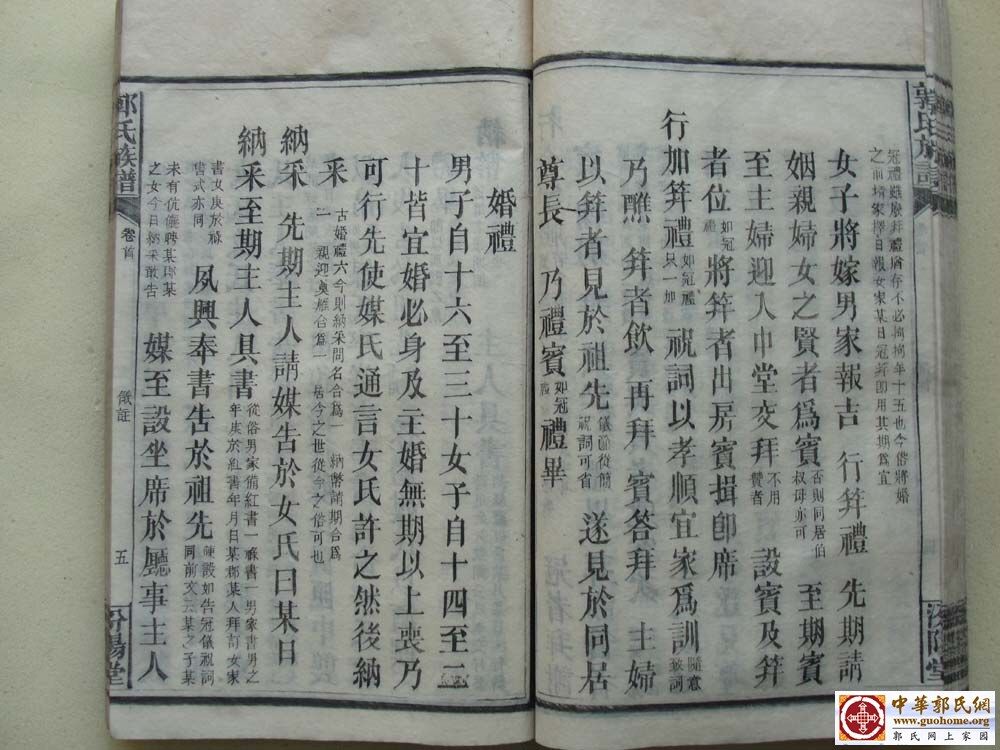 郭氏族譜
冠禮雖廢笄禮猶存不必拘拘年十五也今俗將婚
之前壻家擇日報女家某日冠笄卽用其期爲宜
女子將嫁男家報吉 行笄禮 先期請
姻親婦女之賢者爲賓 否則同居伯叔母亦可 至期賓
至主婦迎入中堂交拜 不用贊者 設賓及笄
者位 如冠禮 將笄者出房賓揖卽席
行加笄禮 如冠禮只一加 祝詞以孝順宜家爲訓 隨意致詞
乃醮 笄者飲 再拜 賓答拜 主婦
以笄者見於祖先 儀節從簡祝詞可省 遂見於同居
尊長 乃禮賓 如冠禮 禮畢
汾陽堂
婚禮
男子自十六至三十女子自十四至二
十皆宜婚必身及主婚無期以上喪乃
可行先使媒氏通言女氏許之然後納
采 古婚禮六今則納采問名合爲一 納幣請期合爲
一 親迎奠雁合爲一 居今之世從今之俗可也
納采 先期主人請媒告於女氏曰某日
納采至期主人具書 從俗男家備紅書一褓書一男家書男之
年庚於紅書年月日某郡某人拜訂女家
書女庚於褓
書式亦同 夙興奉書告於祖先 陳設如告冠儀祝詞
同前文云某之子某
未有伉儷聘某郡某
之女今日納采敢告 媒至設坐席於廳事主人
郭氏族譜
卷首
儀註
五
汾陽堂
中華郭氏網
www.guohome.org
郭氏網上家園